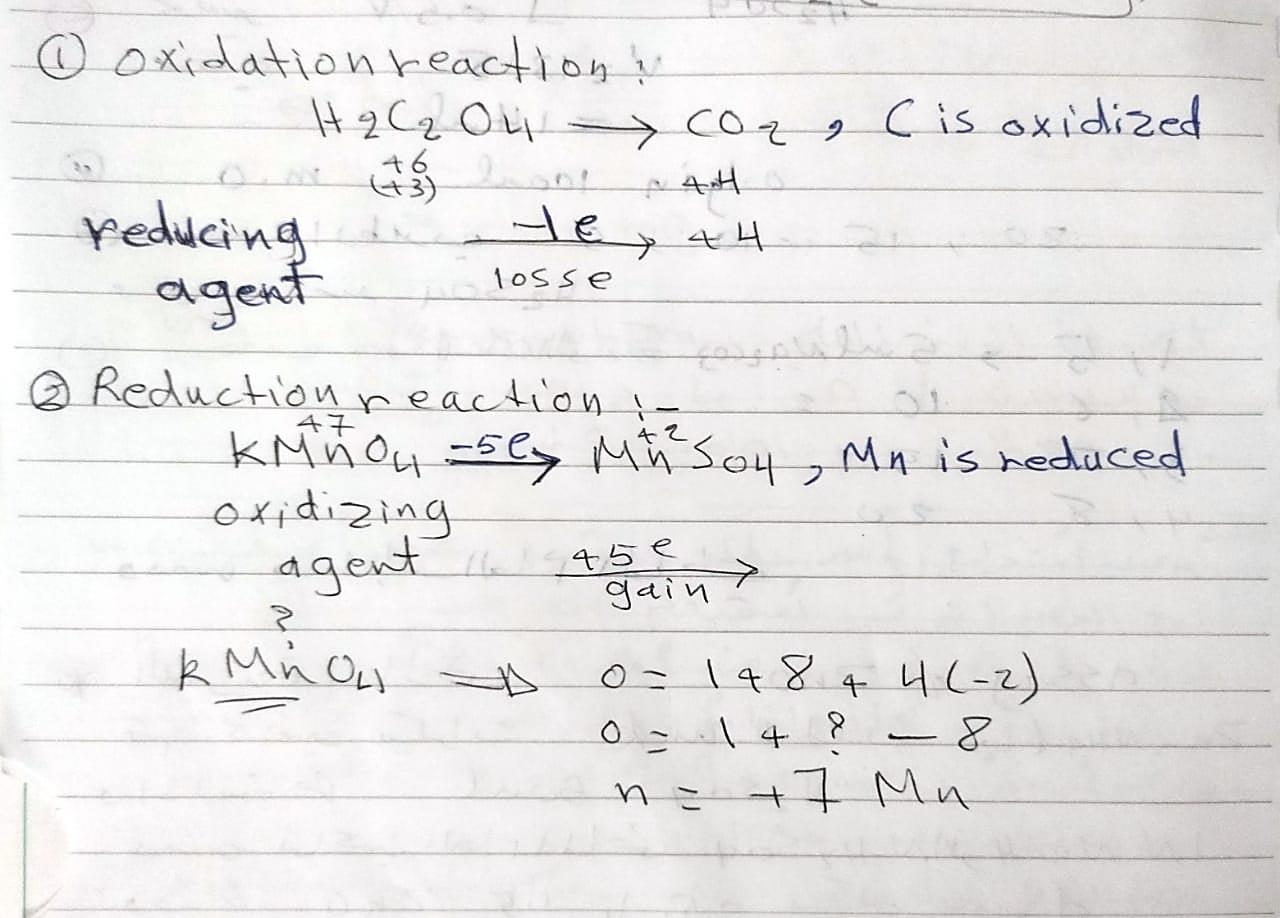 ① Oxidation reaction :
H2C2O4 → CO2 , C is oxidized
+6
(+3) +4
reducing -1e → +4
agent loss e
② Reduction reaction :-
+7 +2
KMnO4 -5e → MnSO4 , Mn is reduced
oxidizing
agent +5e →
gain
?
KMnO4 ⇒ 0 = 1+8+4(-2)
0 = 1 + ? - 8
n = +7 Mn